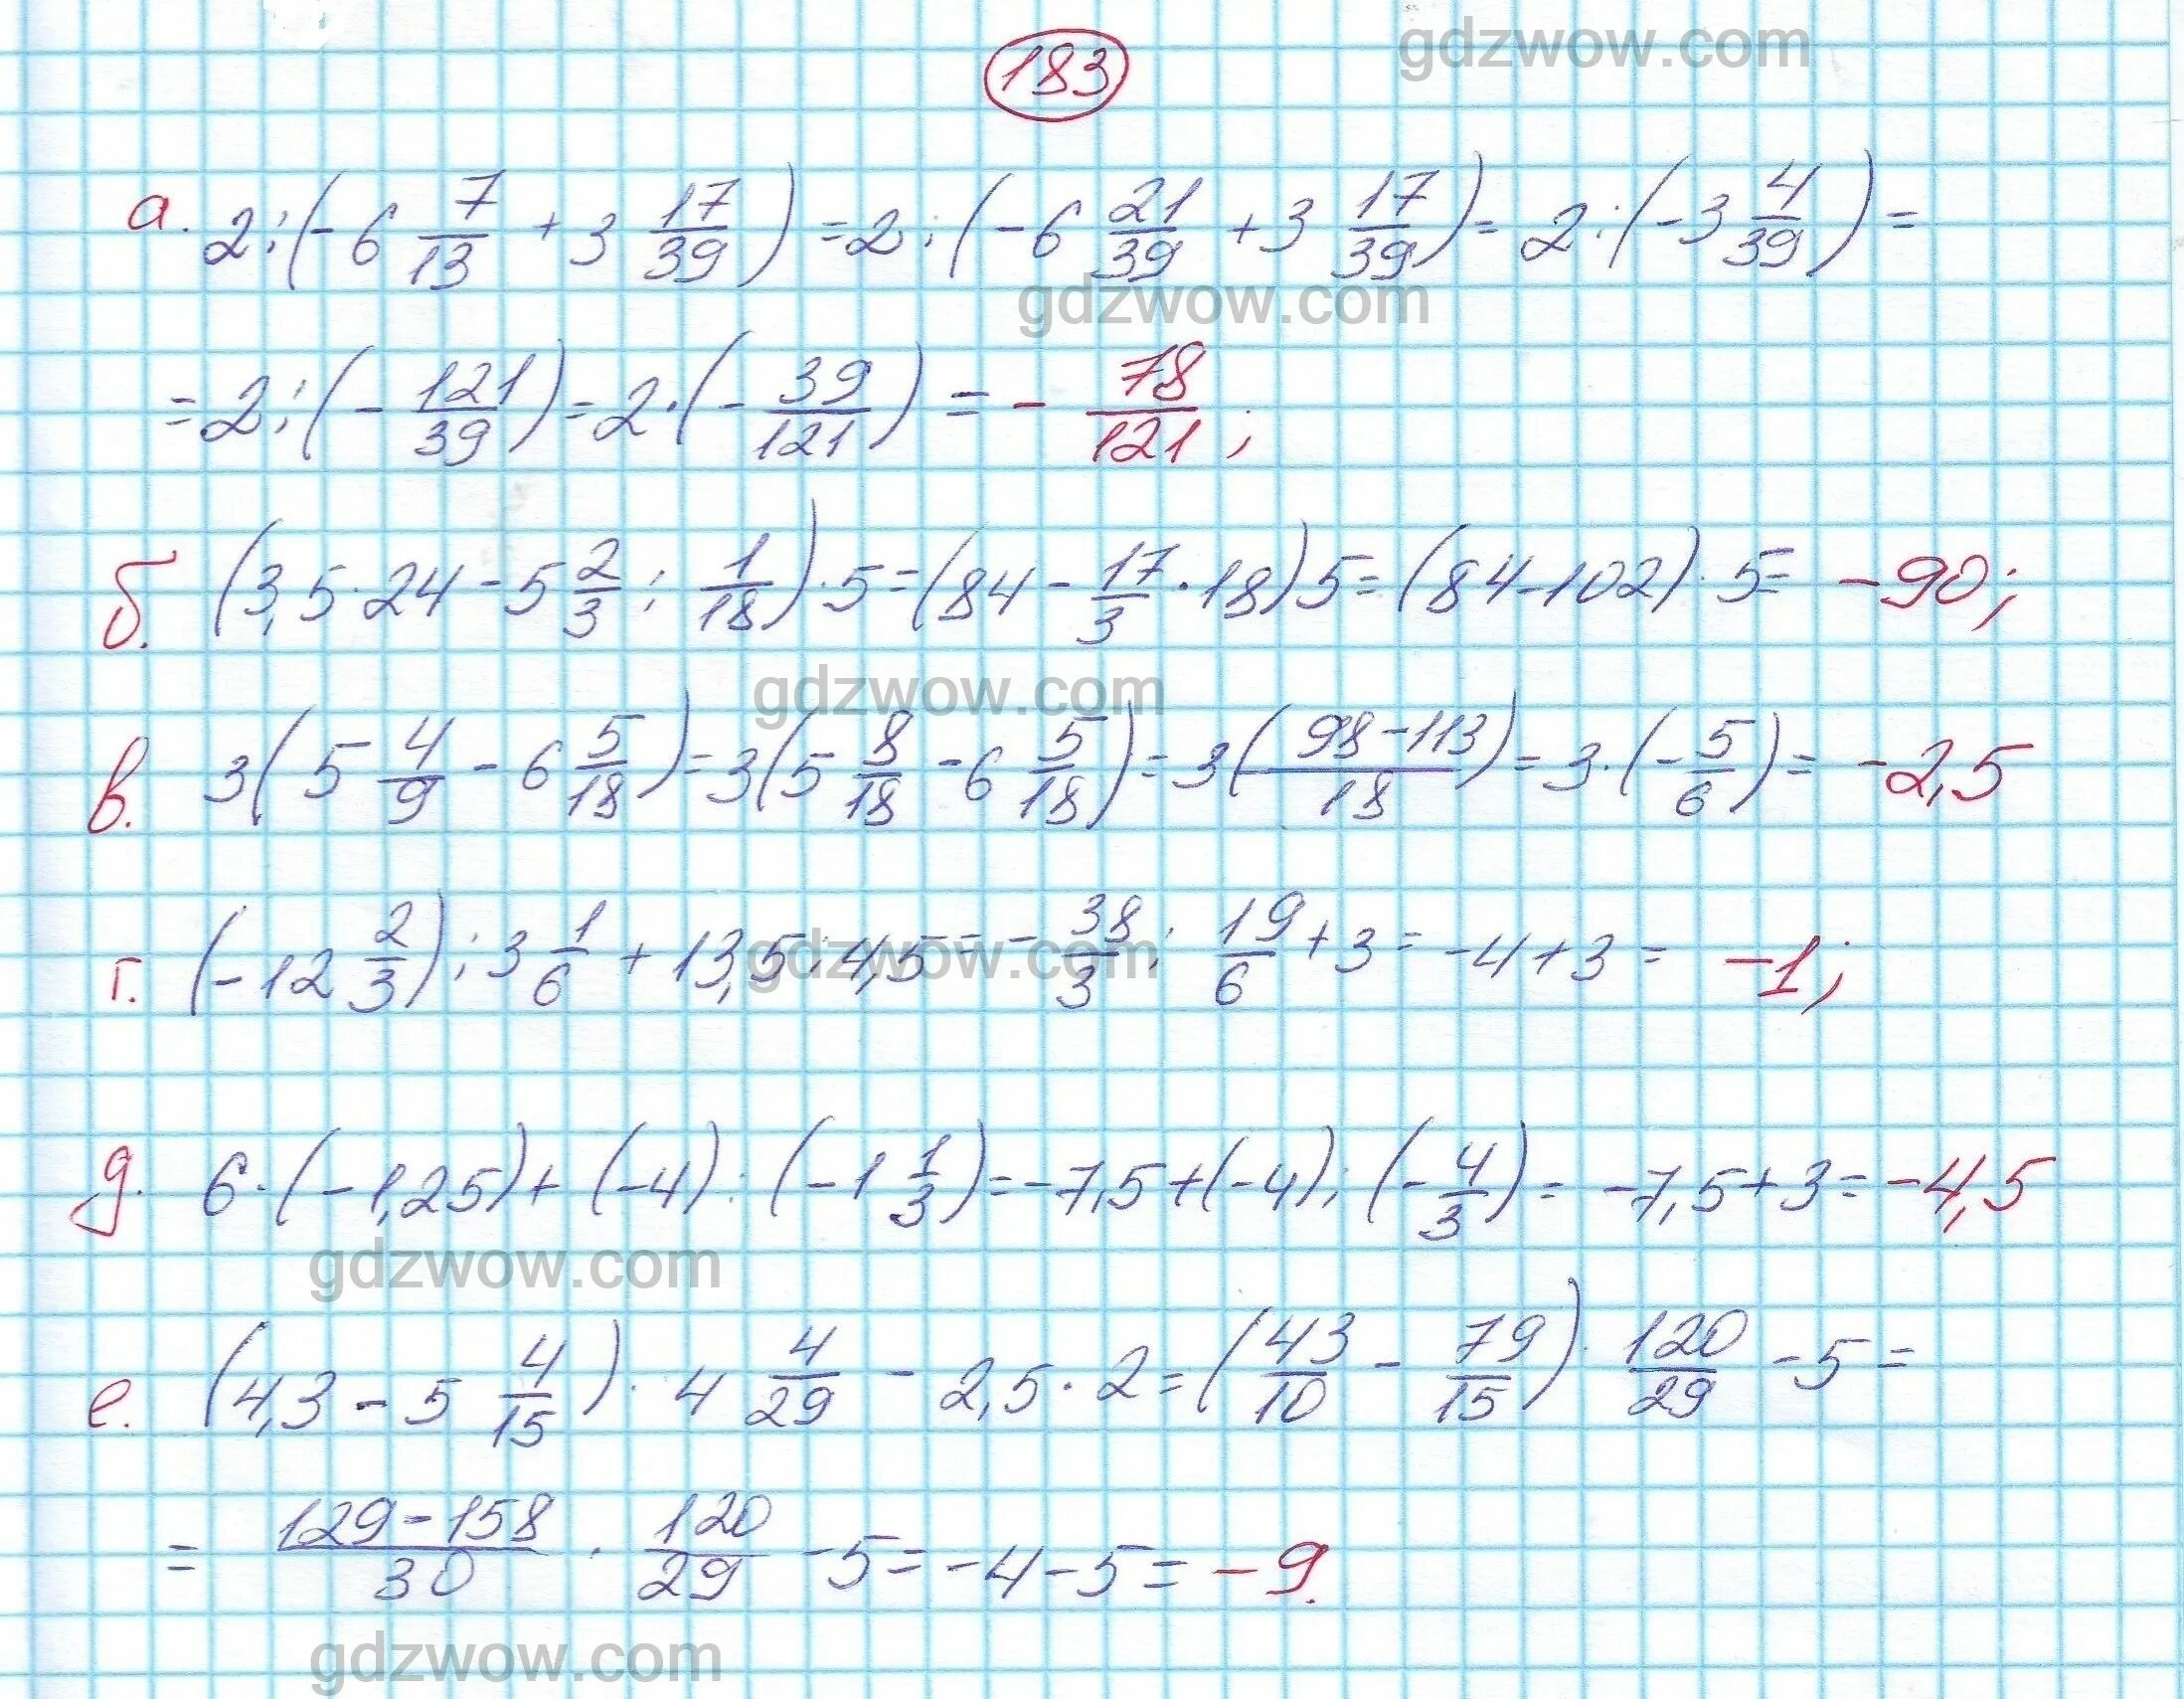 gdzwow.com
183
а. 2:(-6 7/13 + 3 17/39) = 2:(-6 21/39 + 3 17/39) = 2:(-3 4/39) =
gdzwow.com
= 2:(-121/39) = 2·(-39/121) = - 78/121;
б. (3,5·24 - 5 2/3 : 1/18)·5 = (84 - 17/3 · 18)5 = (84-102)·5 = -90;
gdzwow.com
в. 3(5 4/9 - 6 5/18) = 3(5 8/18 - 6 5/18) = 3((98-113)/18) = 3·(-5/6) = -2,5
г. (-12 2/3):3 1/6 + 13,5:4,5 = -38/3 : 19/6 + 3 = -4+3 = -1;
gdzwow.com
д. 6·(-1,25)+(-4):(-1 1/3) = -7,5+(-4):(-4/3) = -7,5+3 = -4,5
gdzwow.com
е. (4,3 - 5 4/15)· 4 4/29 - 2,5·2 = (43/10 - 79/15)· 120/29 - 5 =
= (129-158)/30 · 120/29 - 5 = -4-5 = -9.
gdzwow.com